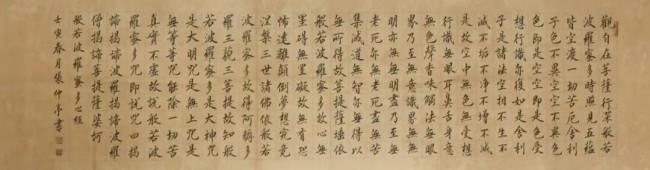 觀自在菩薩行深般若
波羅蜜多時照見五蘊
皆空度一切苦厄舍利
子色不異空空不異色
色即是空空即是色受
想行識亦復如是舍利
子是諸法空相不生不
滅不垢不淨不增不減
是故空中無色無受想
行識無眼耳鼻舌身意
無色聲香味觸法無眼
界乃至無意識界無無
明亦無無明盡乃至無
老死亦無老死盡無苦
集滅道無智亦無得以
無所得故菩提薩埵依
般若波羅蜜多故心無
罣礙無罣礙故無有恐
怖遠離顛倒夢想究竟
涅槃三世諸佛依般若
波羅蜜多故得阿耨多
羅三藐三菩提故知般
若波羅蜜多是大神咒
是大明咒是無上咒是
無等等咒能除一切苦
真實不虛故說般若波
羅蜜多咒即說咒曰揭
諦揭諦波羅揭諦波羅
僧揭諦菩提薩婆訶
般若波羅蜜多心經
壬寅春月張仲亭書